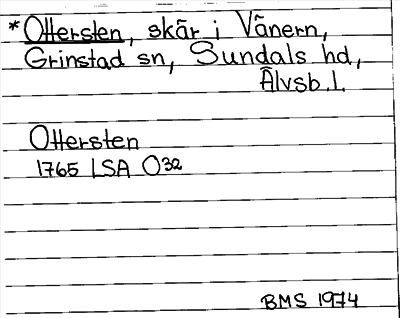 *Ottersten, skär i Vänern,
Grinstad sn, Sundals hd,
Älvsb. l.
Ottersten
1765 LSA O32
BMS 1974